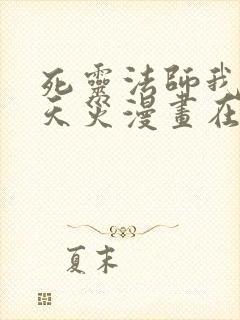 死靈法師我
天災漫畫在
夏末